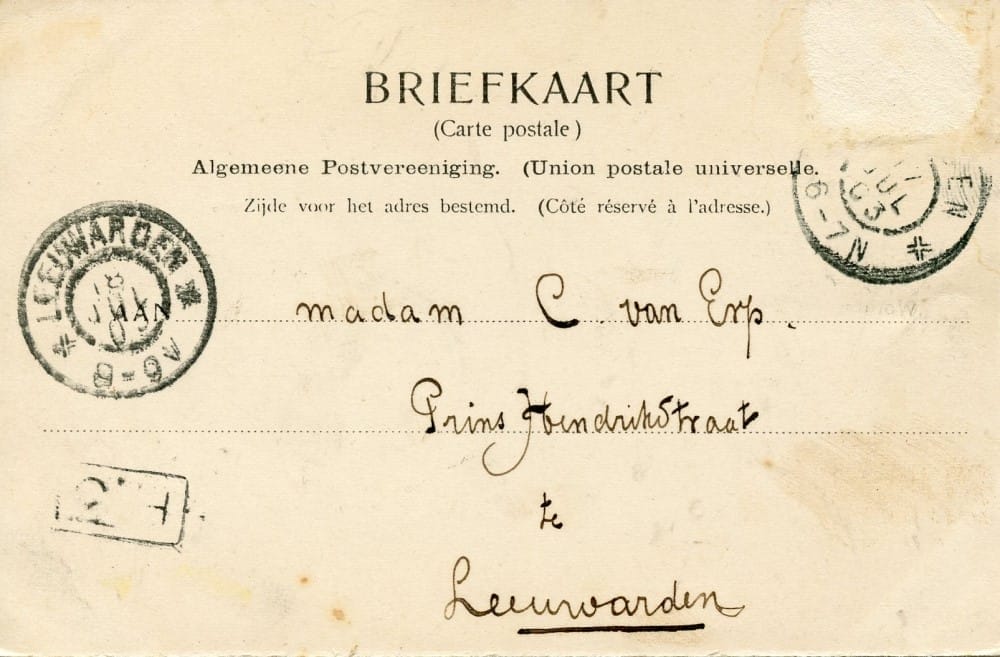 BRIEFKAART
(Carte postale)
Algemeene Postvereeniging. (Union postale universelle.
Zijde voor het adres bestemd. (Côté réservé à l'adresse.)
LEEUWARDEN
8-9V
JUL
03
6-7N
EN
madam C. van Erp.
Prins Hendrikstraat
te
Leeuwarden